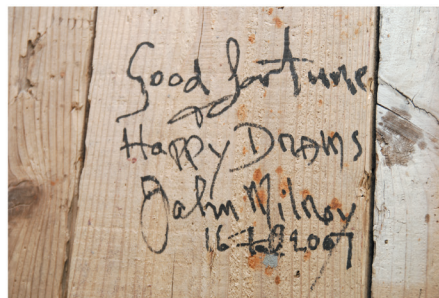 Good fortune
&
Happy Drams
John Milroy
2007